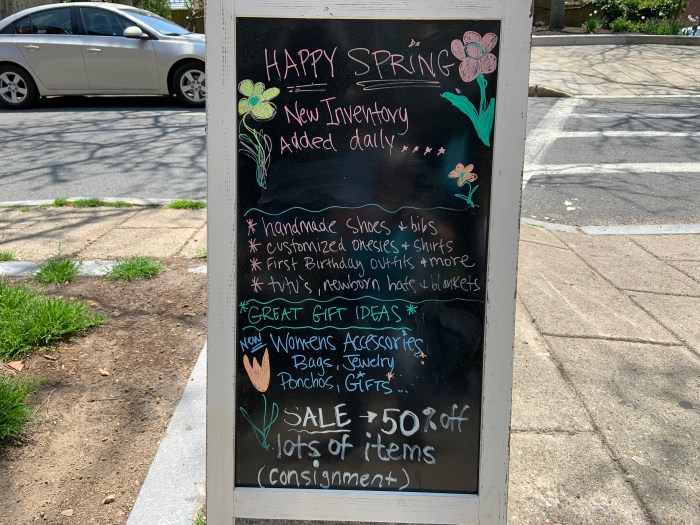 HAPPY SPRING
New Inventory
Added daily.....
* handmade shoes + bibs
* customized onesies + shirts
* First Birthday outfits + more
* tutu's, newborn hats + blankets
*GREAT GIFT IDEAS*
New Womens Accessories
Bags, Jewelry
Ponchos, GIFTS...
SALE → 50% off
lots of items
(consignment)